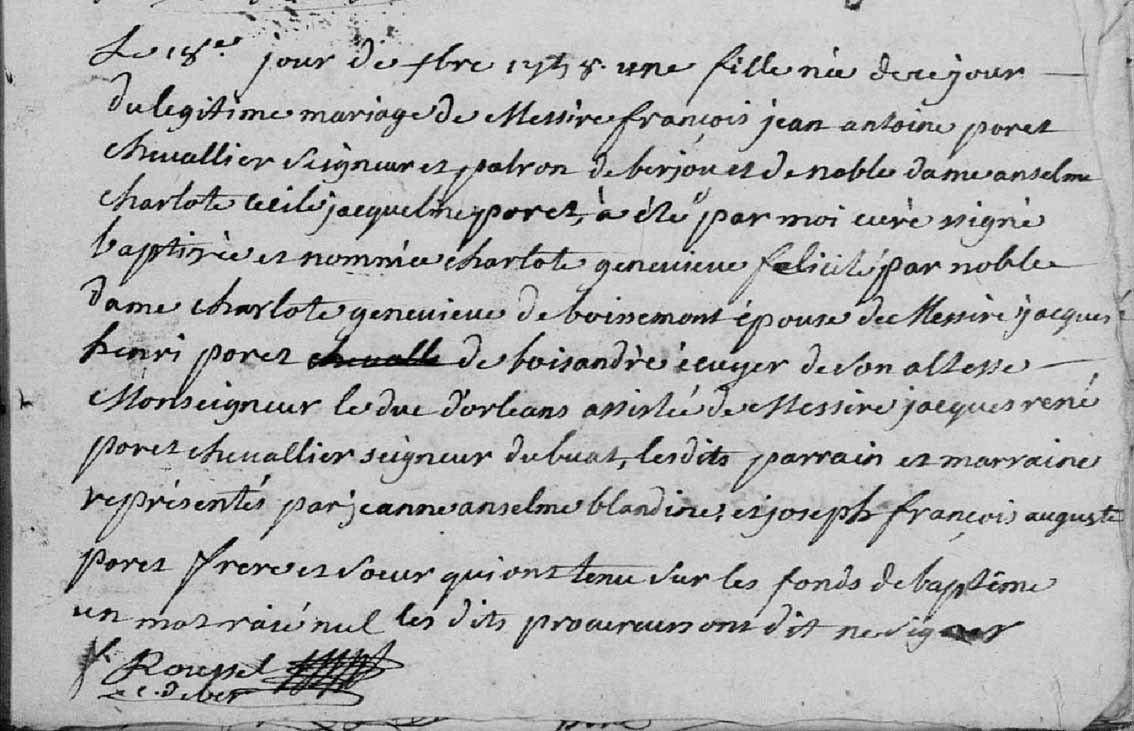 Le 18e jour de fbre 1758. une fille née de ce jour
du legitime mariage de Messire françois jean antoine poret
chevallier seigneur et patron de berjou et de noble dame anselme
charlote cecile jacqueline poret, à été par moi curé signé
baptizée et nommée charlote genevieve felicité par noble
dame charlote genevieve de boissemont épouse de Messire jacques
henri poret chevall de boisandré écuyer de son altesse
Monseigneur le duc d'orleans assistée de Messire jacques rené
poret chevallier seigneur du buat, lesdits parrain et marraine
représentés par jeanne anselme blandine, et joseph françois auguste
poret frere et soeur qui ont tenu sur les fonds de baptême
un mot raié nul les dits procureurs ont dit ne signer
f. Roussel
c. de ber